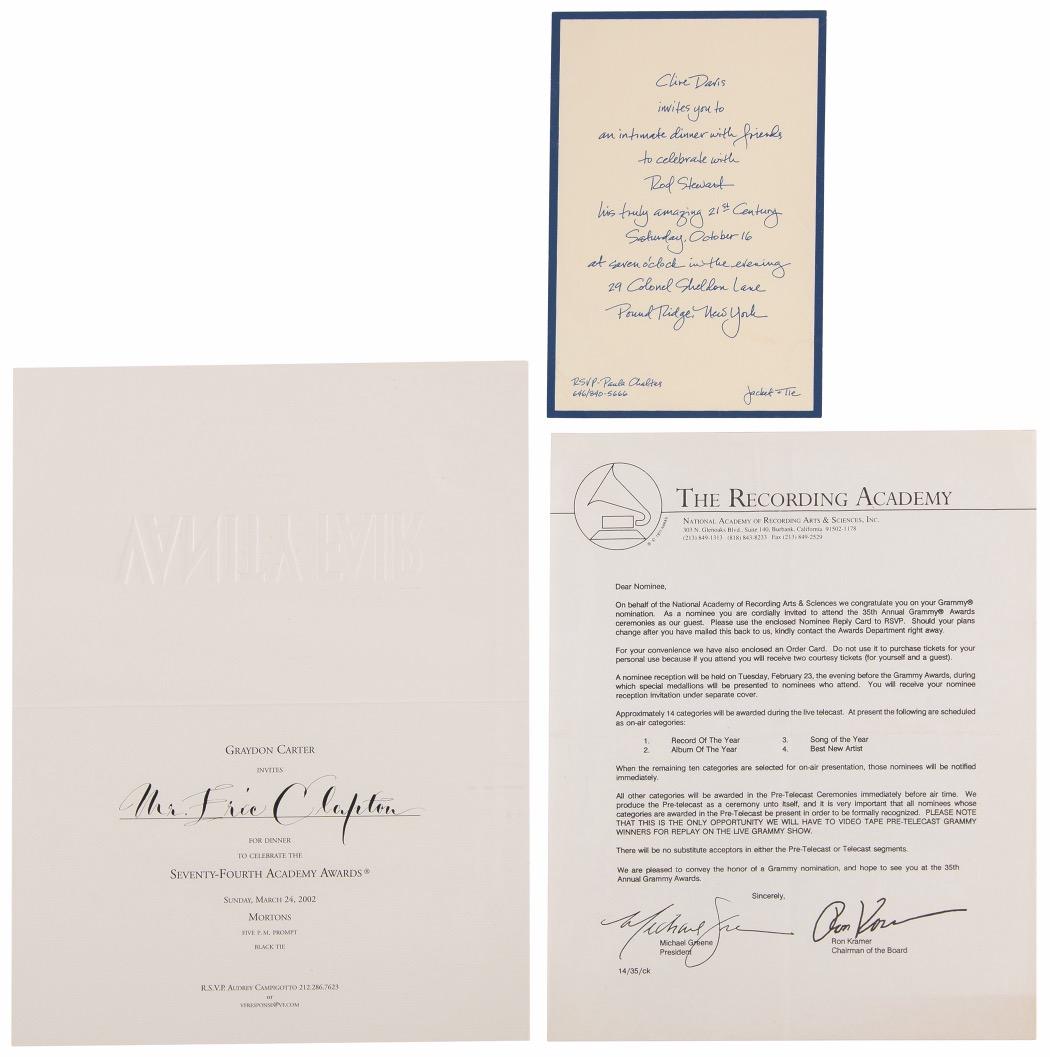 Clive Davis
invites you to
an intimate dinner with friends
to celebrate with
Rod Stewart
his truly amazing 21st Century
Saturday, October 16
at seven o'clock in the evening
29 Colonel Sheldon Lane
Pound Ridge, New York
RSVP-Paula
646/840-5666
Jacket + Tie
VANITY FAIR
GRAYDON CARTER
INVITES
Mr. Eric Clapton
FOR DINNER
TO CELEBRATE THE
SEVENTY-FOURTH ACADEMY AWARDS®
SUNDAY, MARCH 24, 2002
MORTONS
FIVE P.M. PROMPT
BLACK TIE
R.S.V.P. AUDREY CAMPIGOTTO 212.286.7623
or
VFRESPONSE@VF.COM
THE RECORDING ACADEMY
NATIONAL ACADEMY OF RECORDING ARTS & SCIENCES, INC.
303 N. Glenoaks Blvd., Suite 140, Burbank, California 91502-1178
(213) 849-1313 (818) 843-8233 Fax (213) 849-2529
Dear Nominee,
On behalf of the National Academy of Recording Arts & Sciences we congratulate you on your Grammy®
nomination. As a nominee you are cordially invited to attend the 35th Annual Grammy® Awards
ceremonies as our guest. Please use the enclosed Nominee Reply Card to RSVP. Should your plans
change after you have mailed this back to us, kindly contact the Awards Department right away.
For your convenience we have also enclosed an Order Card. Do not use it to purchase tickets for your
personal use because if you attend you will receive two courtesy tickets (for yourself and a guest).
A nominee reception will be held on Tuesday, February 23, the evening before the Grammy Awards, during
which special medallions will be presented to nominees who attend. You will receive your nominee
reception invitation under separate cover.
Approximately 14 categories will be awarded during the live telecast. At present the following are scheduled
as on-air categories:
1. Record Of The Year 3. Song of the Year
2. Album Of The Year 4. Best New Artist
When the remaining ten categories are selected for on-air presentation, those nominees will be notified
immediately.
All other categories will be awarded in the Pre-Telecast Ceremonies immediately before air time. We
produce the Pre-telecast as a ceremony unto itself, and it is very important that all nominees whose
categories are awarded in the Pre-Telecast be present in order to be formally recognized. PLEASE NOTE
THAT THIS IS THE ONLY OPPORTUNITY WE WILL HAVE TO VIDEO TAPE PRE-TELECAST GRAMMY
WINNERS FOR REPLAY ON THE LIVE GRAMMY SHOW.
There will be no substitute acceptors in either the Pre-Telecast or Telecast segments.
We are pleased to convey the honor of a Grammy nomination, and hope to see you at the 35th
Annual Grammy Awards.
Sincerely,
Michael Greene
President
Ron Kramer
Chairman of the Board
14/35/ck